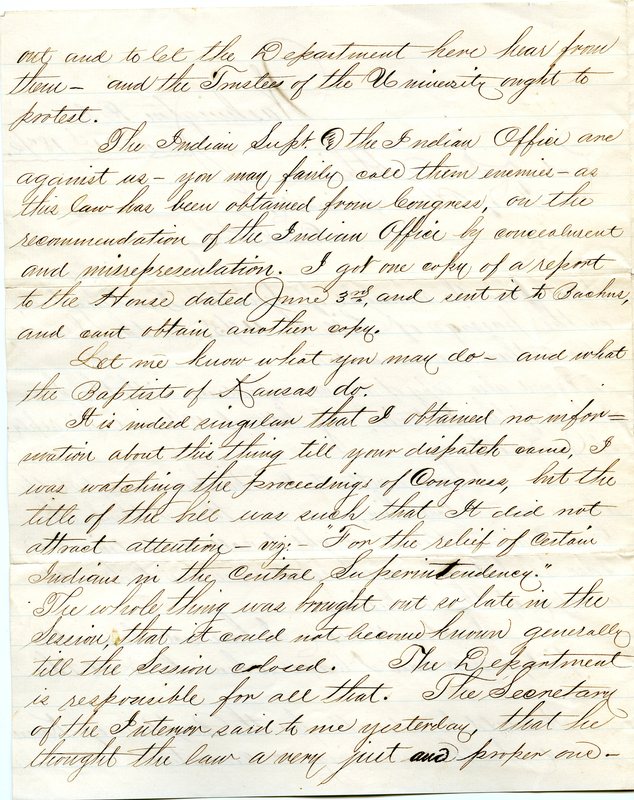 out and to let the Department here hear from
them – and the Trustees of the University ought to
protest.
The Indian Supt. & the Indian Office are
against us – you may fairly call them enemies – as
this law has been obtained from Congress, on the
recommendation of the Indian Office by concealment
and misrepresentation. I got one copy of a report
to the House dated June 3rd, and sent it to Bachus,
and cant obtain another copy.
Let me know what you may do – and what
the Baptists of Kansas do.
It is indeed singular that I obtained no infor=
mation about this thing till your dispatch came, I
was watching the proceedings of Congress, but the
title of the bill was such that It did not
attract attention – viz; – "For the relief of Certain
Indians in the Central Superintendency."
The whole thing was brought out so late in the
Session, that it could not become known generally
till the Session closed. The Department
is responsible for all that. The Secretary
of the Interior said to me yesterday, that he
thought the law a very just and proper one –